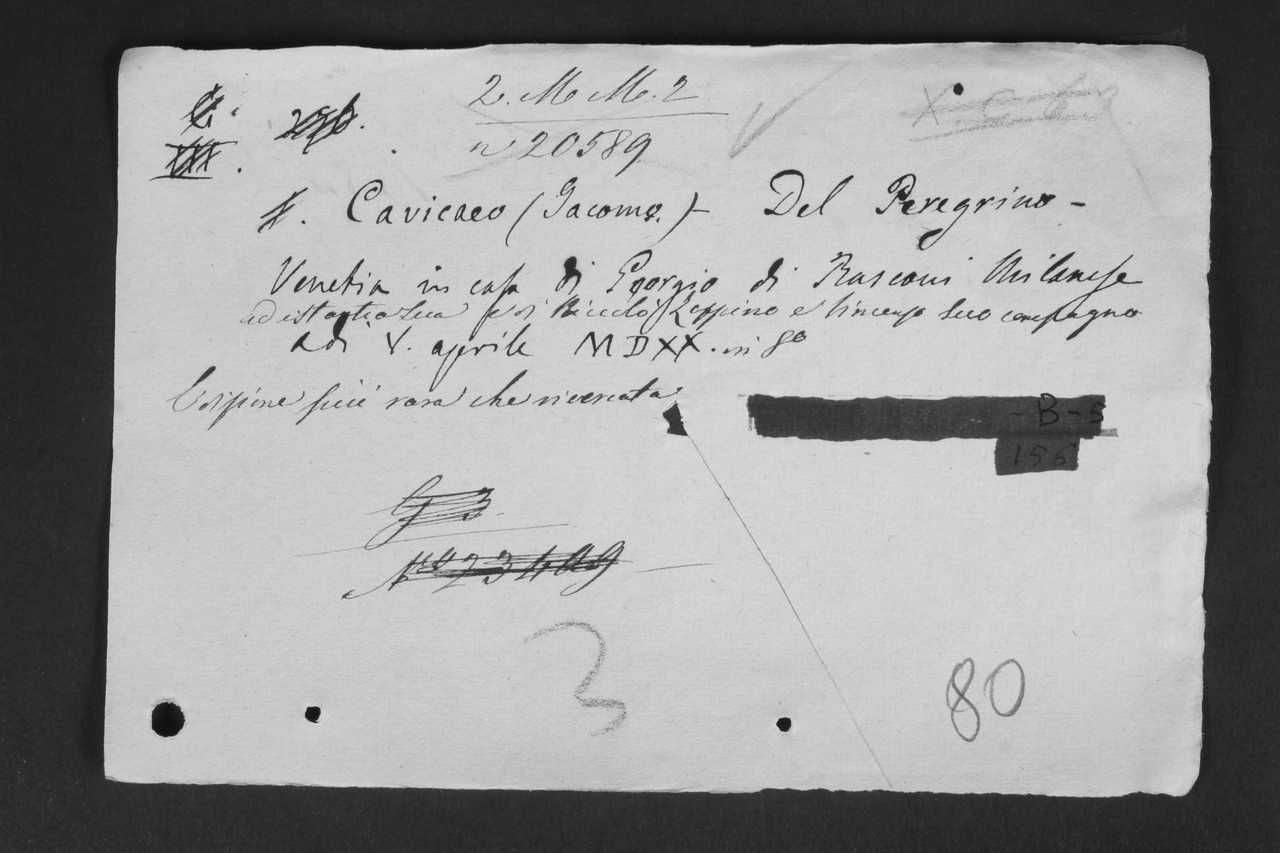 2. M M. 2
n 20589
Cavicaeo (Jacomo.) - Del Peregrino -
Venetia in casa di Georgio di Rusconi Milanese
ad istantia sua e di Nicolò Zoppino e Vincenzo suo compagno
adi V. aprile MDXX. in 8º
Edizione più rara che ricercata
- B - 5
156
G 3.
Nº 23409
3
80